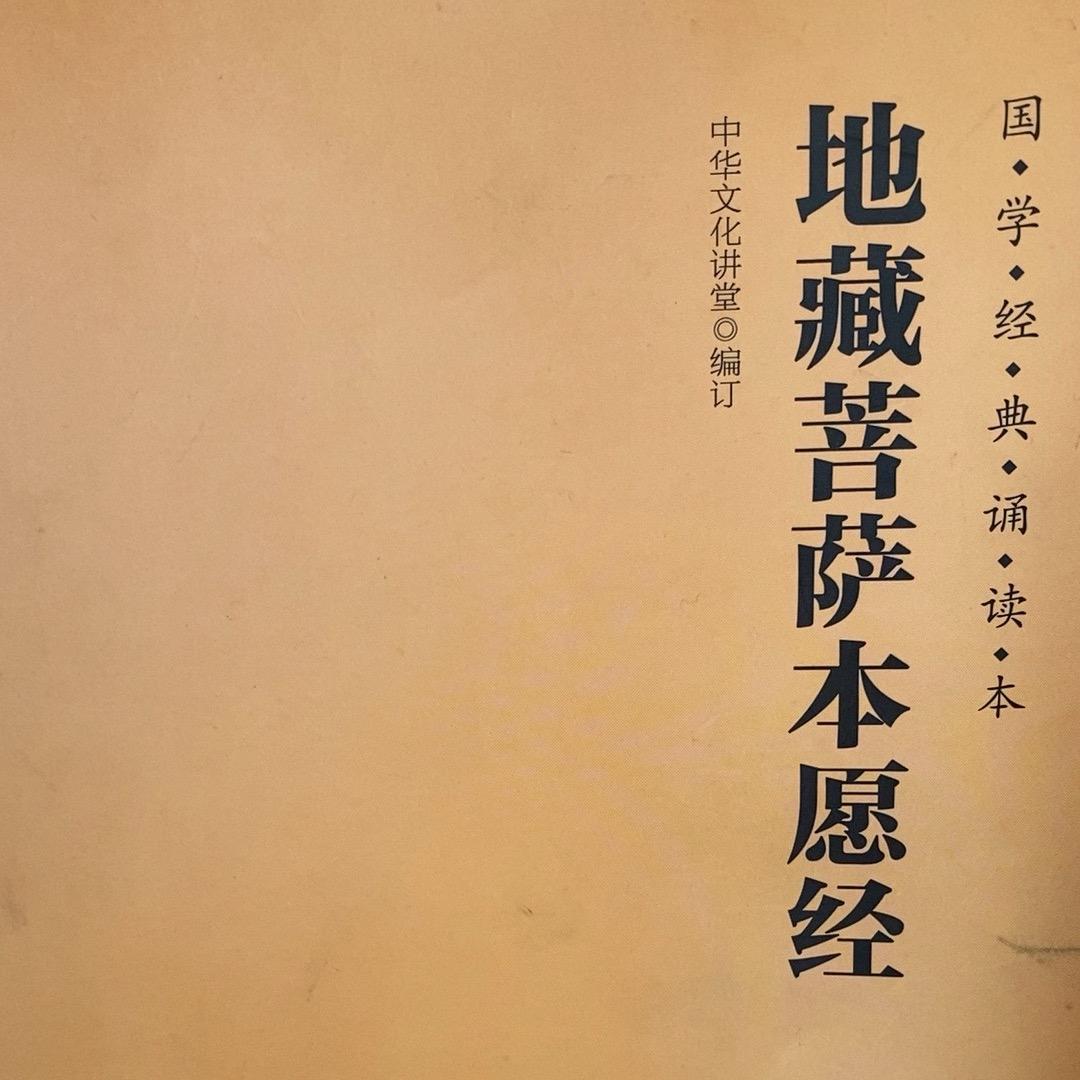 国·学·经·典·诵·读·本
地藏菩萨本愿经
中华文化讲堂◎编订